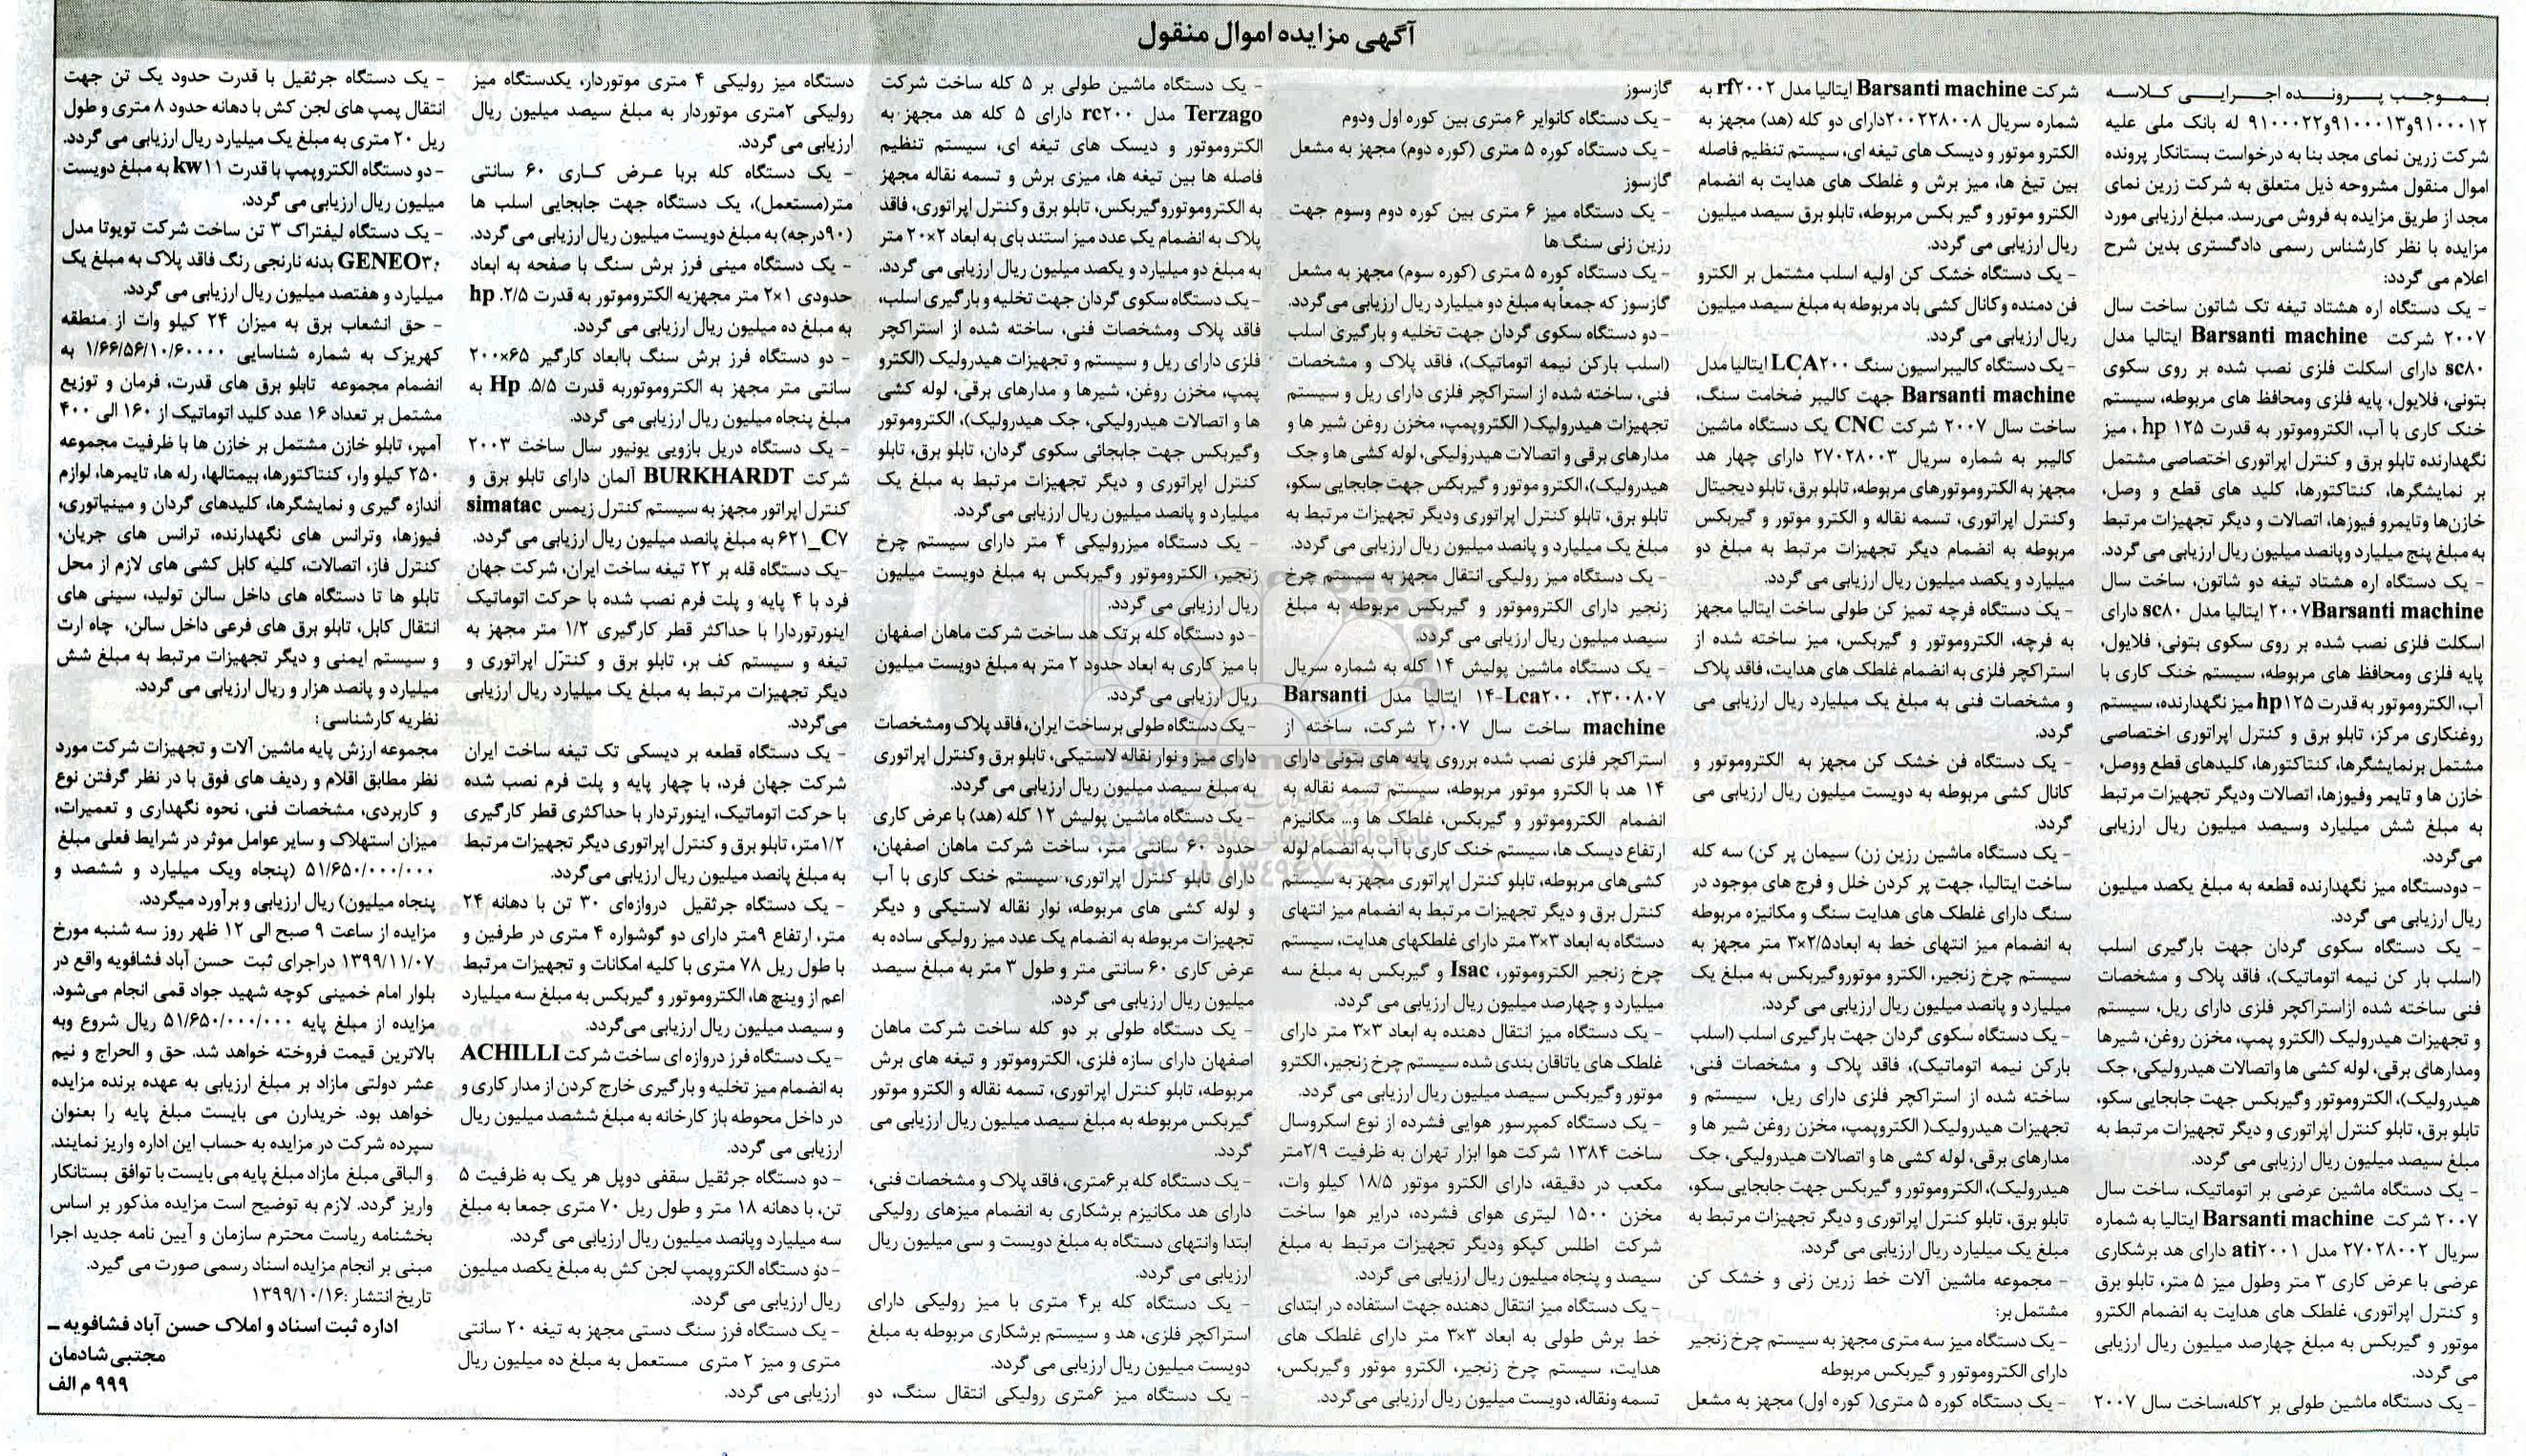 آگهی مزایده اموال منقول
بـمـوجـب پـرونـده اجـرایـی کـلاسه
۹۱۰۰۰۱۲و۹۱۰۰۰۱۳و۹۱۰۰۰۲۲ له بانک ملی علیه
شرکت زرین نمای مجد بنا به درخواست بستانکار پرونده
اموال منقول مشروحه ذیل متعلق به شرکت زرین نمای
مجد از طریق مزایده به فروش می‌رسد. مبلغ ارزیابی مورد
مزایده با نظر کارشناس رسمی دادگستری بدین شرح
اعلام می گردد:
- یک دستگاه اره هشتاد تیغه تک شاتون ساخت سال
۲۰۰۷ شرکت Barsanti machine ایتالیا مدل
sc۸۰ دارای اسکلت فلزی نصب شده بر روی سکوی
بتونی، فلایول، پایه فلزی ومحافظ های مربوطه، سیستم
خنک کاری با آب، الکتروموتور به قدرت ۱۲۵ hp ، میز
نگهدارنده تابلو برق و کنترل اپراتوری اختصاصی مشتمل
بر نمایشگرها، کنتاکتورها، کلید های قطع و وصل،
خازن‌ها وتایمرو فیوزها، اتصالات و دیگر تجهیزات مرتبط
به مبلغ پنج میلیارد وپانصد میلیون ریال ارزیابی می گردد.
- یک دستگاه اره هشتاد تیغه دو شاتون، ساخت سال
۲۰۰۷Barsanti machine ایتالیا مدل sc۸۰ دارای
اسکلت فلزی نصب شده بر روی سکوی بتونی، فلایول،
پایه فلزی ومحافظ های مربوطه، سیستم خنک کاری با
آب، الکتروموتور به قدرت hp۱۲۵ میز نگهدارنده، سیستم
روغنکاری مرکز، تابلو برق و کنترل اپراتوری اختصاصی
مشتمل برنمایشگرها، کنتاکتورها، کلیدهای قطع ووصل،
خازن ها و تایمر وفیوزها، اتصالات ودیگر تجهیزات مرتبط
به مبلغ شش میلیارد وسیصد میلیون ریال ارزیابی
می‌گردد.
- دودستگاه میز نگهدارنده قطعه به مبلغ یکصد میلیون
ریال ارزیابی می گردد.
- یک دستگاه سکوی گردان جهت بارگیری اسلب
(اسلب بار کن نیمه اتوماتیک)، فاقد پلاک و مشخصات
فنی ساخته شده ازاستراکچر فلزی دارای ریل، سیستم
و تجهیزات هیدرولیک (الکترو پمپ، مخزن روغن، شیرها
ومدارهای برقی، لوله کشی ها واتصالات هیدرولیکی، جک
هیدرولیک)، الکتروموتور وگیربکس جهت جابجایی سکو،
تابلو برق، تابلو کنترل اپراتوری و دیگر تجهیزات مرتبط به
مبلغ سیصد میلیون ریال ارزیابی می گردد.
- یک دستگاه ماشین عرضی بر اتوماتیک، ساخت سال
۲۰۰۷ شرکت Barsanti machine ایتالیا به شماره
سریال ۲۷۰۲۸۰۰۲ مدل ati۲۰۰۱ دارای هد برشکاری
عرضی با عرض کاری ۳ متر وطول میز ۵ متر، تابلو برق
و کنترل اپراتوری، غلطک های هدایت به انضمام الکترو
موتور و گیربکس به مبلغ چهارصد میلیون ریال ارزیابی
می گردد.
- یک دستگاه ماشین طولی بر ۲کله،ساخت سال ۲۰۰۷
شرکت Barsanti machine ایتالیا مدل rf۲۰۰۲ به
شماره سریال ۲۰۰۲۲۸۰۰۸دارای دو کله (هد) مجهز به
الکترو موتور و دیسک های تیغه ای، سیستم تنظیم فاصله
بین تیغ ها، میز برش و غلطک های هدایت به انضمام
الکترو موتور و گیر بکس مربوطه، تابلو برق سیصد میلیون
ریال ارزیابی می گردد.
- یک دستگاه خشک کن اولیه اسلب مشتمل بر الکترو
فن دمنده وکانال کشی باد مربوطه به مبلغ سیصد میلیون
ریال ارزیابی می گردد.
- یک دستگاه کالیبراسیون سنگ LCA۲۰۰ ایتالیا مدل
Barsanti machine جهت کالیبر ضخامت سنگ،
ساخت سال ۲۰۰۷ شرکت CNC یک دستگاه ماشین
کالیبر به شماره سریال ۲۷۰۲۸۰۰۳ دارای چهار هد
مجهز به الکتروموتورهای مربوطه، تابلو برق، تابلو دیجیتال
وکنترل اپراتوری، تسمه نقاله و الکترو موتور و گیربکس
مربوطه به انضمام دیگر تجهیزات مرتبط به مبلغ دو
میلیارد و یکصد میلیون ریال ارزیابی می گردد.
- یک دستگاه فرچه تمیز کن طولی ساخت ایتالیا مجهز
به فرچه، الکتروموتور و گیربکس، میز ساخته شده از
استراکچر فلزی به انضمام غلطک های هدایت، فاقد پلاک
و مشخصات فنی به مبلغ یک میلیارد ریال ارزیابی می
گردد.
- یک دستگاه فن خشک کن مجهز به الکتروموتور و
کانال کشی مربوطه به دویست میلیون ریال ارزیابی می
گردد.
- یک دستگاه ماشین رزین زن) سیمان پر کن) سه کله
ساخت ایتالیا، جهت پر کردن خلل و فرج های موجود در
سنگ دارای غلطک های هدایت سنگ و مکانیزه مربوطه
به انضمام میز انتهای خط به ابعاد۲/۵×۳ متر مجهز به
سیستم چرخ زنجیر، الکترو موتوروگیربکس به مبلغ یک
میلیارد و پانصد میلیون ریال ارزیابی می گردد.
- یک دستگاه سکوی گردان جهت بارگیری اسلب (اسلب
بارکن نیمه اتوماتیک)، فاقد پلاک و مشخصات فنی،
ساخته شده از استراکچر فلزی دارای ریل، سیستم و
تجهیزات هیدرولیک( الکتروپمپ، مخزن روغن، شیر ها و
مدارهای برقی، لوله کشی ها و اتصالات هیدرولیکی، جک
هیدرولیک)، الکتروموتور و گیربکس جهت جابجایی سکو،
تابلو برق، تابلو کنترل اپراتوری و دیگر تجهیزات مرتبط به
مبلغ یک میلیارد ریال ارزیابی می گردد.
- مجموعه ماشین آلات خط زرین زنی و خشک کن
مشتمل بر:
- یک دستگاه میز سه متری مجهز به سیستم چرخ زنجیر
دارای الکتروموتور و گیربکس مربوطه
- یک دستگاه کوره ۵ متری( کوره اول) مجهز به مشعل
گازسوز
- یک دستگاه کانوایر ۶ متری بین کوره اول ودوم
- یک دستگاه کوره ۵ متری (کوره دوم) مجهز به مشعل
گازسوز
- یک دستگاه میز ۶ متری بین کوره دوم وسوم جهت
رزین زنی سنگ ها
- یک دستگاه کوره ۵ متری (کوره سوم) مجهز به مشعل
گازسوز که جمعاً به مبلغ دو میلیارد ریال ارزیابی می‌گردد.
- دو دستگاه سکوی گردان جهت تخلیه و بارگیری اسلب
(اسلب بارکن نیمه اتوماتیک)، فاقد پلاک و مشخصات
فنی، ساخته شده از استراکچر فلزی دارای ریل و سیستم
تجهیزات هیدرولیک( الکتروپمپ، مخزن روغن شیر ها و
مدارهای برقی و اتصالات هیدرولیکی، لوله کشی ها و جک
هیدرولیک)، الکترو موتور و گیربکس جهت جابجایی سکو،
تابلو برق، تابلو کنترل اپراتوری ودیگر تجهیزات مرتبط به
مبلغ یک میلیارد و پانصد میلیون ریال ارزیابی می گردد.
- یک دستگاه میز رولیکی انتقال مجهز به سیستم چرخ
زنجیر دارای الکتروموتور و گیربکس مربوطه به مبلغ
سیصد میلیون ریال ارزیابی می گردد.
- یک دستگاه ماشین پولیش ۱۴ کله به شماره سریال
۲۳۰۰۸۰۷، ۱۴-Lca۲۰۰ ایتالیا مدل Barsanti
machine ساخت سال ۲۰۰۷ شرکت، ساخته از
استراکچر فلزی نصب شده برروی پایه های بتونی دارای
۱۴ هد با الکترو موتور مربوطه، سیستم تسمه نقاله به
انضمام الکتروموتور و گیربکس، غلطک ها و... مکانیزم
ارتفاع دیسک ها، سیستم خنک کاری با آب به انضمام لوله
کشی‌های مربوطه، تابلو کنترل اپراتوری مجهز به سیستم
کنترل برق و دیگر تجهیزات مرتبط به انضمام میز انتهای
دستگاه به ابعاد ۳×۳ متر دارای غلطکهای هدایت، سیستم
چرخ زنجیر الکتروموتور، Isac و گیربکس به مبلغ سه
میلیارد و چهارصد میلیون ریال ارزیابی می گردد.
- یک دستگاه میز انتقال دهنده به ابعاد ۳×۳ متر دارای
غلطک های یاتاقان بندی شده سیستم چرخ زنجیر، الکترو
موتور وگیربکس سیصد میلیون ریال ارزیابی می گردد.
- یک دستگاه کمپرسور هوایی فشرده از نوع اسکروسال
ساخت ۱۳۸۴ شرکت هوا ابزار تهران به ظرفیت ۲/۹متر
مکعب در دقیقه، دارای الکترو موتور ۱۸/۵ کیلو وات،
مخزن ۱۵۰۰ لیتری هوای فشرده، درایر هوا ساخت
شرکت اطلس کپکو ودیگر تجهیزات مرتبط به مبلغ
سیصد و پنجاه میلیون ریال ارزیابی می گردد.
- یک دستگاه میز انتقال دهنده جهت استفاده در ابتدای
خط برش طولی به ابعاد ۳×۳ متر دارای غلطک های
هدایت، سیستم چرخ زنجیر، الکترو موتور وگیربکس،
تسمه ونقاله، دویست میلیون ریال ارزیابی می‌گردد.
- یک دستگاه ماشین طولی بر ۵ کله ساخت شرکت
Terzago مدل rc۲۰۰ دارای ۵ کله هد مجهز به
الکتروموتور و دیسک های تیغه ای، سیستم تنظیم
فاصله ها بین تیغه ها، میزی برش و تسمه نقاله مجهز
به الکتروموتوروگیربکس، تابلو برق وکنترل اپراتوری، فاقد
پلاک به انضمام یک عدد میز استند بای به ابعاد ۲×۲۰ متر
به مبلغ دو میلیارد و یکصد میلیون ریال ارزیابی می گردد.
- یک دستگاه سکوی گردان جهت تخلیه و بارگیری اسلب،
فاقد پلاک ومشخصات فنی، ساخته شده از استراکچر
فلزی دارای ریل و سیستم و تجهیزات هیدرولیک (الکترو
پمپ، مخزن روغن، شیرها و مدارهای برقی، لوله کشی
ها و اتصالات هیدرولیکی، جک هیدرولیک)، الکتروموتور
وگیربکس جهت جابجائی سکوی گردان، تابلو برق، تابلو
کنترل اپراتوری و دیگر تجهیزات مرتبط به مبلغ یک
میلیارد و پانصد میلیون ریال ارزیابی می‌گردد.
- یک دستگاه میزرولیکی ۴ متر دارای سیستم چرخ
زنجیر، الکتروموتور وگیربکس به مبلغ دویست میلیون
ریال ارزیابی می گردد.
- دو دستگاه کله برتک هد ساخت شرکت ماهان اصفهان
با میز کاری به ابعاد حدود ۲ متر به مبلغ دویست میلیون
ریال ارزیابی می گردد.
- یک دستگاه طولی برساخت ایران، فاقد پلاک ومشخصات
دارای میز و نوار نقاله لاستیکی، تابلو برق وکنترل اپراتوری
به مبلغ سیصد میلیون ریال ارزیابی می گردد.
- یک دستگاه ماشین پولیش ۱۲ کله (هد) با عرض کاری
حدود ۶۰ سانتی متر، ساخت شرکت ماهان اصفهان،
دارای تابلو کنترل اپراتوری، سیستم خنک کاری با آب
و لوله کشی های مربوطه، نوار نقاله لاستیکی و دیگر
تجهیزات مربوطه به انضمام یک عدد میز رولیکی ساده به
عرض کاری ۶۰ سانتی متر و طول ۳ متر به مبلغ سیصد
میلیون ریال ارزیابی می گردد.
- یک دستگاه طولی بر دو کله ساخت شرکت ماهان
اصفهان دارای سازه فلزی، الکتروموتور و تیغه های برش
مربوطه، تابلو کنترل اپراتوری، تسمه نقاله و الکترو موتور
گیربکس مربوطه به مبلغ سیصد میلیون ریال ارزیابی می
گردد.
- یک دستگاه کله بر۶متری، فاقد پلاک و مشخصات فنی،
دارای هد مکانیزم برشکاری به انضمام میزهای رولیکی
ابتدا وانتهای دستگاه به مبلغ دویست و سی میلیون ریال
ارزیابی می گردد.
- یک دستگاه کله بر۴ متری با میز رولیکی دارای
استراکچر فلزی، هد و سیستم برشکاری مربوطه به مبلغ
دویست میلیون ریال ارزیابی می گردد.
- یک دستگاه میز ۶متری رولیکی انتقال سنگ، دو
دستگاه میز رولیکی ۴ متری موتوردار، یکدستگاه میز
رولیکی ۲متری موتوردار به مبلغ سیصد میلیون ریال
ارزیابی می گردد.
- یک دستگاه کله بربا عـرض کـاری ۶۰ سانتی
متر(مستعمل)، یک دستگاه جهت جابجایی اسلب ها
(۹۰درجه) به مبلغ دویست میلیون ریال ارزیابی می گردد.
- یک دستگاه مینی فرز برش سنگ با صفحه به ابعاد
حدودی ۱×۲ متر مجهزبه الکتروموتور به قدرت ۲/۵. hp
به مبلغ ده میلیون ریال ارزیابی می گردد.
- دو دستگاه فرز برش سنگ باابعاد کارگیر ۶۵×۲۰۰
سانتی متر مجهز به الکتروموتوربه قدرت ۵/۵. Hp به
مبلغ پنجاه میلیون ریال ارزیابی می گردد.
- یک دستگاه دریل بازویی یونیور سال ساخت ۲۰۰۳
شرکت BURKHARDT آلمان دارای تابلو برق و
کنترل اپراتور مجهز به سیستم کنترل زیمس simatac
C۷_۶۲۱ به مبلغ پانصد میلیون ریال ارزیابی می گردد.
-یک دستگاه قله بر ۲۲ تیغه ساخت ایران، شرکت جهان
فرد با ۴ پایه و پلت فرم نصب شده با حرکت اتوماتیک
اینورتوردارا با حداکثر قطر کارگیری ۱/۲ متر مجهز به
تیغه و سیستم کف بر، تابلو برق و کنترل اپراتوری و
دیگر تجهیزات مرتبط به مبلغ یک میلیارد ریال ارزیابی
می‌گردد.
- یک دستگاه قطعه بر دیسکی تک تیغه ساخت ایران
شرکت جهان فرد، با چهار پایه و پلت فرم نصب شده
با حرکت اتوماتیک، اینورتردار با حداکثری قطر کارگیری
۱/۲متر، تابلو برق و کنترل اپراتوری دیگر تجهیزات مرتبط
به مبلغ پانصد میلیون ریال ارزیابی می‌گردد.
- یک دستگاه جرثقیل دروازه‌ای ۳۰ تن با دهانه ۲۴
متر، ارتفاع ۹متر دارای دو گوشواره ۴ متری در طرفین و
با طول ریل ۷۸ متری با کلیه امکانات و تجهیزات مرتبط
اعم از وینچ ها، الکتروموتور و گیربکس به مبلغ سه میلیارد
و سیصد میلیون ریال ارزیابی می‌گردد.
- یک دستگاه فرز دروازه ای ساخت شرکت ACHILLI
به انضمام میز تخلیه و بارگیری خارج کردن از مدار کاری و
در داخل محوطه باز کارخانه به مبلغ ششصد میلیون ریال
ارزیابی می گردد.
- دو دستگاه جرثقیل سقفی دوپل هر یک به ظرفیت ۵
تن، با دهانه ۱۸ متر و طول ریل ۷۰ متری جمعا به مبلغ
سه میلیارد وپانصد میلیون ریال ارزیابی می گردد.
- دو دستگاه الکتروپمپ لجن کش به مبلغ یکصد میلیون
ریال ارزیابی می گردد.
- یک دستگاه فرز سنگ دستی مجهز به تیغه ۲۰ سانتی
متری و میز ۲ متری مستعمل به مبلغ ده میلیون ریال
ارزیابی می گردد.
- یک دستگاه جرثقیل با قدرت حدود یک تن جهت
انتقال پمپ های لجن کش با دهانه حدود ۸ متری و طول
ریل ۲۰ متری به مبلغ یک میلیارد ریال ارزیابی می گردد.
-دو دستگاه الکتروپمپ با قدرت kw۱۱ به مبلغ دویست
میلیون ریال ارزیابی می گردد.
- یک دستگاه لیفتراک ۳ تن ساخت شرکت تویوتا مدل
GENEO۳۰ بدنه نارنجی رنگ فاقد پلاک به مبلغ یک
میلیارد و هفتصد میلیون ریال ارزیابی می گردد.
- حق انشعاب برق به میزان ۲۴ کیلو وات از منطقه
کهریزک به شماره شناسایی ۱/۶۶/۵۶/۱۰/۶۰۰۰۰ به
انضمام مجموعه تابلو برق های قدرت، فرمان و توزیع
مشتمل بر تعداد ۱۶ عدد کلید اتوماتیک از ۱۶۰ الی ۴۰۰
آمپر، تابلو خازن مشتمل بر خازن ها با ظرفیت مجموعه
۲۵۰ کیلو وار، کنتاکتورها، بیمتالها، رله ها، تایمرها، لوازم
اندازه گیری و نمایشگرها، کلیدهای گردان و مینیاتوری،
فیوزها، وترانس های نگهدارنده، ترانس های جریان،
کنترل فاز، اتصالات، کلیه کابل کشی های لازم از محل
تابلو ها تا دستگاه های داخل سالن تولید، سینی های
انتقال کابل، تابلو برق های فرعی داخل سالن، چاه ارت
و سیستم ایمنی و دیگر تجهیزات مرتبط به مبلغ شش
میلیارد و پانصد هزار و ریال ارزیابی می گردد.
نظریه کارشناسی :
مجموعه ارزش پایه ماشین آلات و تجهیزات شرکت مورد
نظر مطابق اقلام و ردیف های فوق با در نظر گرفتن نوع
و کاربردی، مشخصات فنی، نحوه نگهداری و تعمیرات،
میزان استهلاک و سایر عوامل موثر در شرایط فعلی مبلغ
۵۱/۶۵۰/۰۰۰/۰۰۰ (پنجاه ویک میلیارد و ششصد و
پنجاه میلیون) ریال ارزیابی و برآورد میگردد.
مزایده از ساعت ۹ صبح الی ۱۲ ظهر روز سه شنبه مورخ
۱۳۹۹/۱۱/۰۷ دراجرای ثبت حسن آباد فشافویه واقع در
بلوار امام خمینی کوچه شهید جواد قمی انجام می‌شود.
مزایده از مبلغ پایه ۵۱/۶۵۰/۰۰۰/۰۰۰ ریال شروع وبه
بالاترین قیمت فروخته خواهد شد. حق و الحراج و نیم
عشر دولتی مازاد بر مبلغ ارزیابی به عهده برنده مزایده
خواهد بود. خریدارن می بایست مبلغ پایه را بعنوان
سپرده شرکت در مزایده به حساب این اداره واریز نمایند.
و الباقی مبلغ مازاد مبلغ پایه می بایست با توافق بستانکار
واریز گردد. لازم به توضیح است مزایده مذکور بر اساس
بخشنامه ریاست محترم سازمان و آیین نامه جدید اجرا
مبنی بر انجام مزایده اسناد رسمی صورت می گیرد.
تاریخ انتشار :۱۳۹۹/۱۰/۱۶
اداره ثبت اسناد و املاک حسن آباد فشافویه ــ
مجتبی شادمان
۹۹۹ م الف